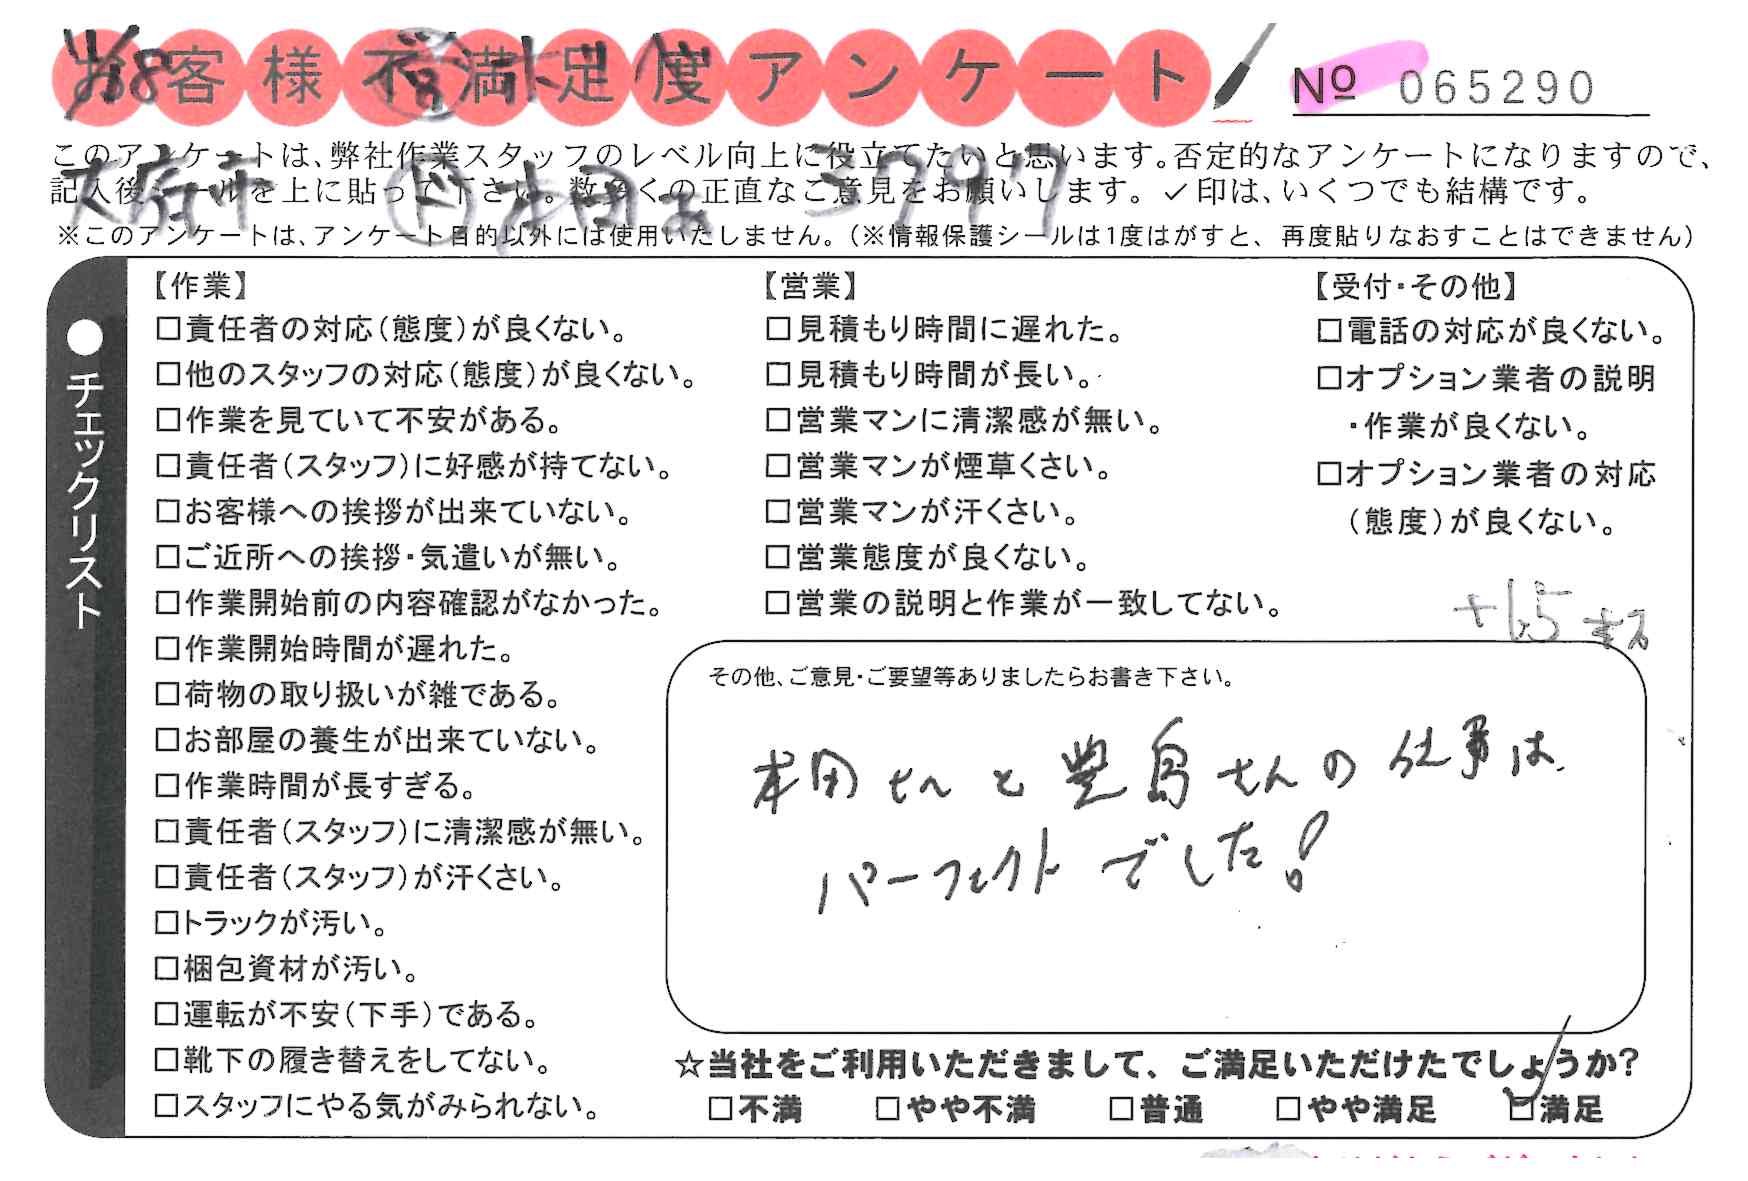 お客様不満足度アンケート
№ 065290
このアンケートは、弊社作業スタッフのレベル向上に役立てたいと思います。否定的なアンケートになりますので、
記入後シールを上に貼って下さい。数多くの正直なご意見をお願いします。✓印は、いくつでも結構です。
※このアンケートは、アンケート目的以外には使用いたしません。(※情報保護シールは1度はがすと、再度貼りなおすことはできません)
11/18
大府市
3797
●チェックリスト
【作業】
□責任者の対応(態度)が良くない。
□他のスタッフの対応(態度)が良くない。
□作業を見ていて不安がある。
□責任者(スタッフ)に好感が持てない。
□お客様への挨拶が出来ていない。
□ご近所への挨拶・気遣いが無い。
□作業開始前の内容確認がなかった。
□作業開始時間が遅れた。
□荷物の取り扱いが雑である。
□お部屋の養生が出来ていない。
□作業時間が長すぎる。
□責任者(スタッフ)に清潔感が無い。
□責任者(スタッフ)が汗くさい。
□トラックが汚い。
□梱包資材が汚い。
□運転が不安(下手)である。
□靴下の履き替えをしてない。
□スタッフにやる気がみられない。
【営業】
□見積もり時間に遅れた。
□見積もり時間が長い。
□営業マンに清潔感が無い。
□営業マンが煙草くさい。
□営業マンが汗くさい。
□営業態度が良くない。
□営業の説明と作業が一致してない。
【受付・その他】
□電話の対応が良くない。
□オプション業者の説明
・作業が良くない。
□オプション業者の対応
(態度)が良くない。
その他、ご意見・ご要望等ありましたらお書き下さい。
本田さんと豊島さんの仕事は
パーフェクトでした!
☆当社をご利用いただきまして、ご満足いただけたでしょうか?
□不満 □やや不満 □普通 □やや満足 ☑満足